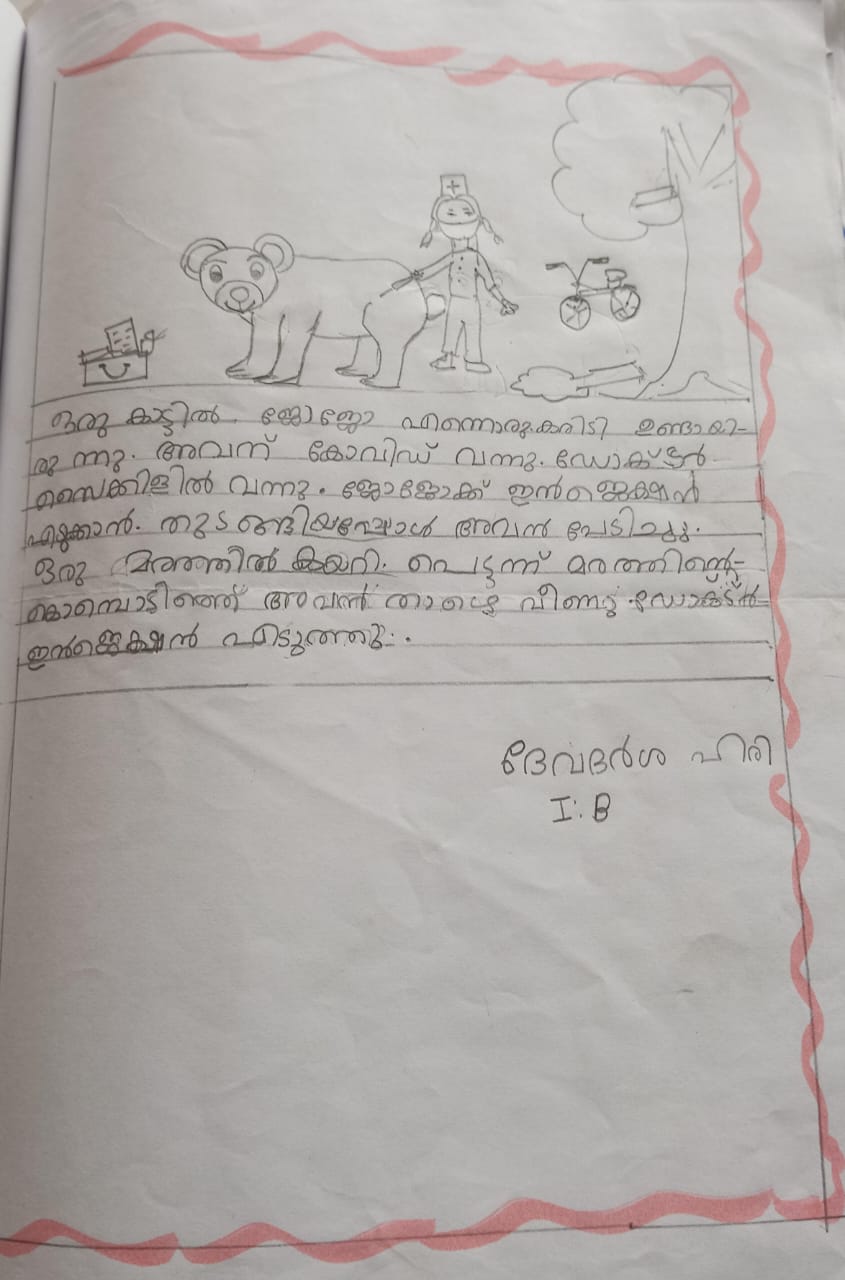 ഒരു കാട്ടിൽ. ജോജോ എന്നൊരുകരടി ഉണ്ടായി-
രുന്നു. അവന് കോവിഡ് വന്നു. ഡോക്ടർ.
സൈക്കിളിൽ വന്നു. ജോജോക്ക് ഇൻജെക്ഷൻ
എടുക്കാൻ. തുടങ്ങിയപ്പോൾ അവൻ പേടിച്ചു.
ഒരു മരത്തിൽ കയറി. പെട്ടന്ന് മരത്തിന്റെ-
കൊമ്പൊടിഞ്ഞ് അവൻ താഴെ വീണു. ഡോക്ടർ-
ഇൻജെക്ഷൻ എടുത്തു..
ദേവദർശ ഹരി
I:B